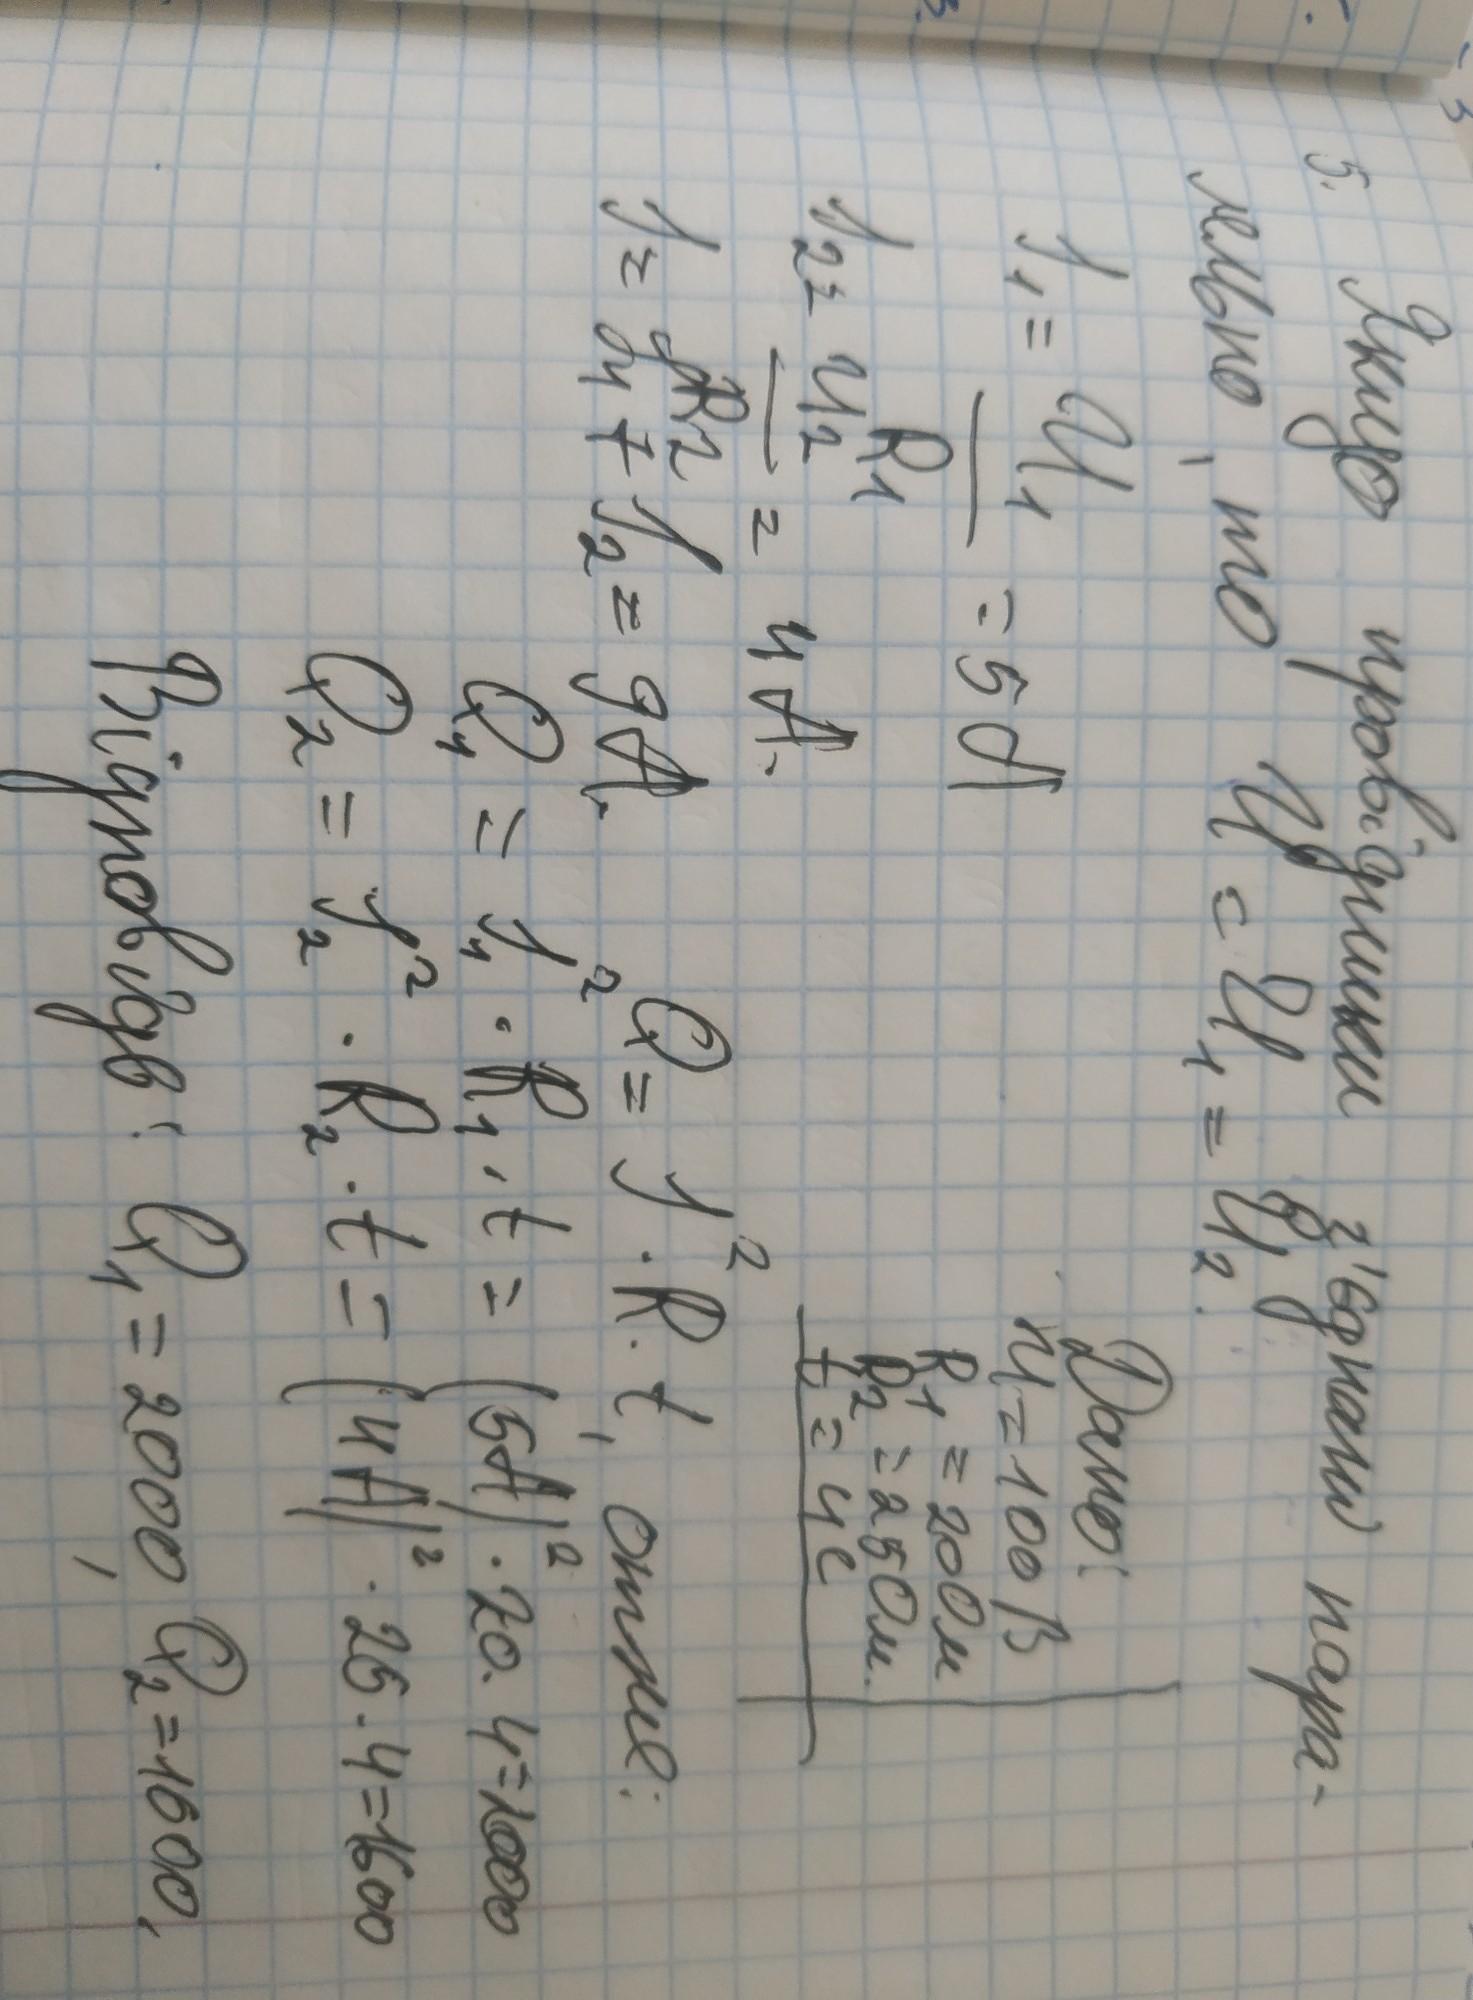 5. Якщо провідники з'єднані пара-
лельно, то U = U1 = U2.
Дано:
U = 100 В
R1 = 20 Ом
R2 = 25 Ом.
t = 4 с
I1 = U1 / R1 = 5 А
I2 = U2 / R2 = 4 А.
I = I1 + I2 = 9 А.
Q = I² · R · t, отже:
Q1 = I1² · R1 · t = (5А)² · 20 · 4 = 2000
Q2 = I2² · R2 · t = (4А)² · 25 · 4 = 1600
Відповідь: Q1 = 2000, Q2 = 1600,